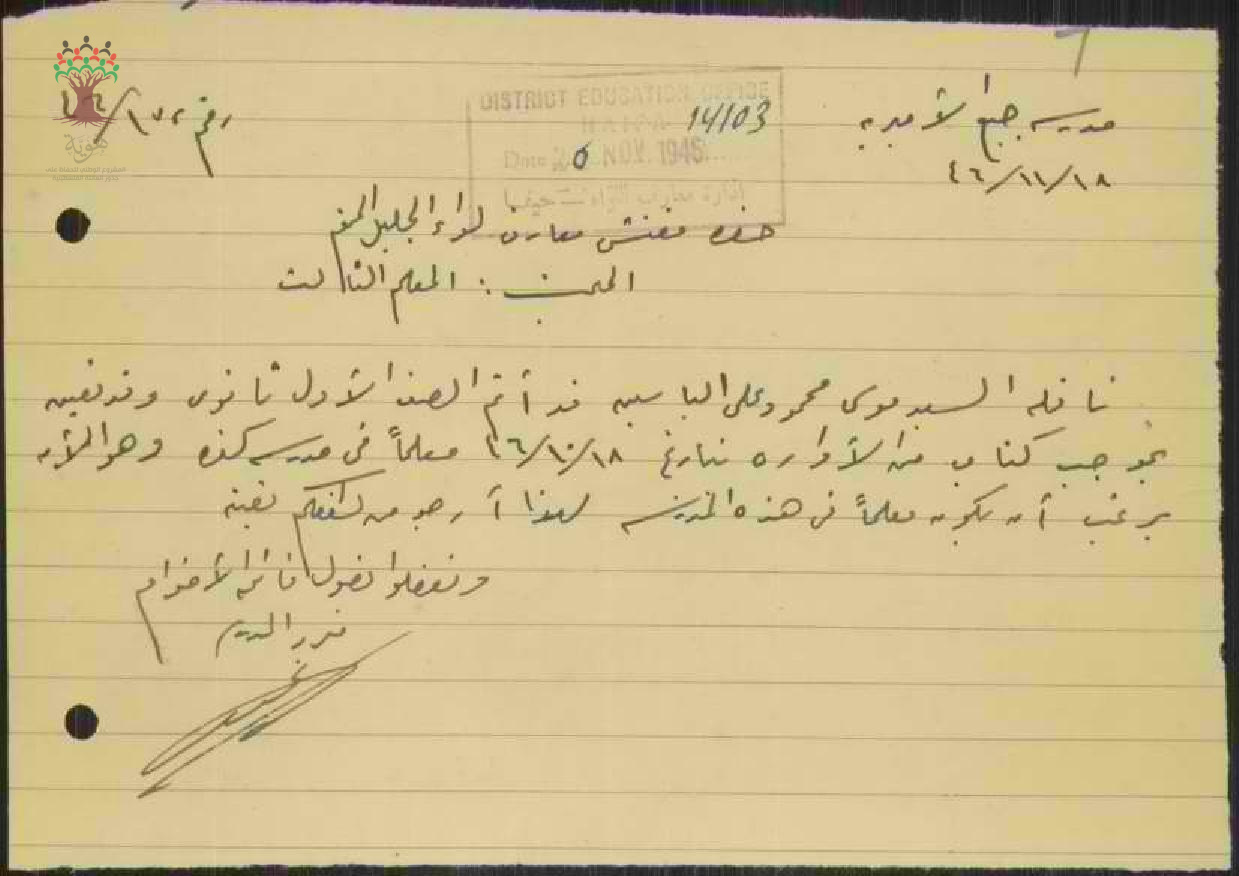 مدرسة جبع الأميرية
رقم ١٧٢/٤٦
١٨/١١/٤٦
DISTRICT EDUCATION OFFICE
HAIFA
14/03
Date 2 NOV. 1946
إدارة معارف اللواء – حيفا
حضرة مفتش معارف لواء الجليل
: المعلم الثالث
ناقله السيد موسى محمود علي الياسين قد أتم الصف الأول ثانوي وقد تعين
بموجب كتاب من الأداره بتاريخ ١٨/١٠/٤٦ معلماً في مدرسة كفره وهو الآن
يرغب أن يكون معلماً في هذه المدرسة لهذا أرجو من لطفكم تعينه
وتفضلوا بقبول فائق الأحترام
مدير المدرسة